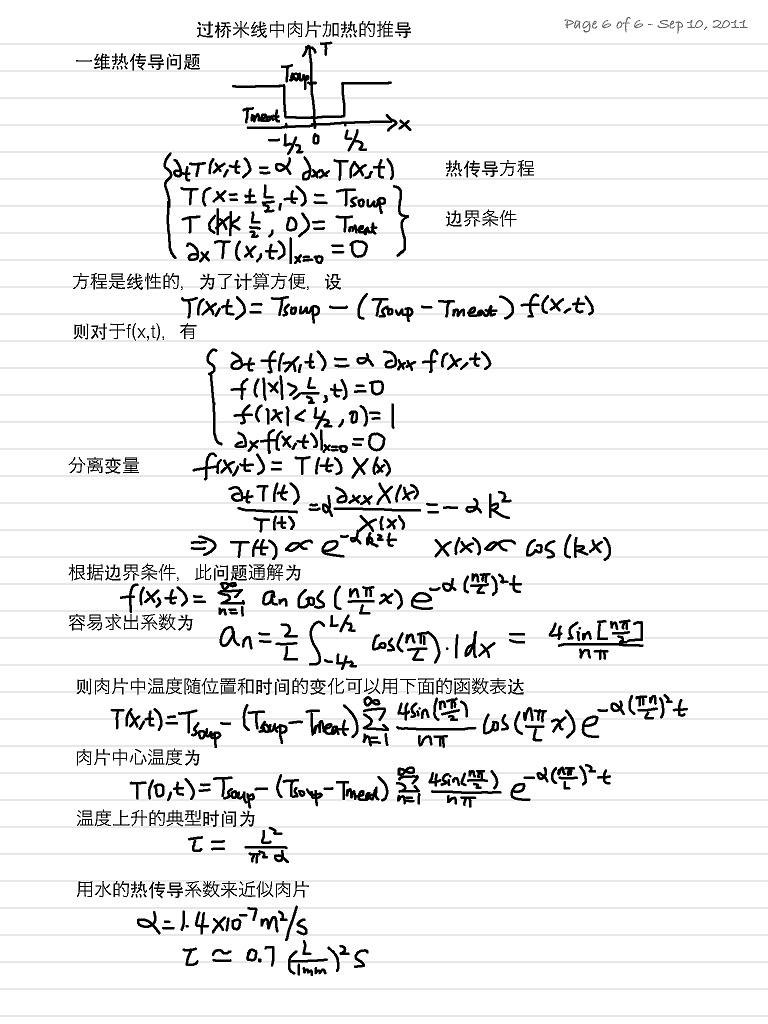 Page 6 of 6 - Sep 10, 2011
过桥米线中肉片加热的推导
一维热传导问题
T
Tsoup
Tmeat
-L/2 0 L/2 x
∂tT(x,t) = α ∂xx T(x,t) 热传导方程
T(x=±L/2,t) = Tsoup
T(|x|<L/2, 0) = Tmeat 边界条件
∂xT(x,t)|x=0 = 0
方程是线性的，为了计算方便，设
T(x,t) = Tsoup - (Tsoup - Tmeat) f(x,t)
则对于f(x,t)，有
∂t f(x,t) = α ∂xx f(x,t)
f(|x|≥L/2,t) = 0
f(|x|<L/2,0) = 1
∂x f(x,t)|x=0 = 0
分离变量 f(x,t) = T(t) X(x)
∂tT(t)/T(t) = α ∂xxX(x)/X(x) = -αk²
⇒ T(t) ∝ e^(-αk²t) X(x) ∝ cos(kx)
根据边界条件，此问题通解为
f(x,t) = Σ_{n=1}^{∞} an cos(nπ/L x) e^(-α(nπ/L)²t)
容易求出系数为 an = 2/L ∫_{-L/2}^{L/2} cos(nπ/L)·1dx = 4sin[nπ/2]/nπ
则肉片中温度随位置和时间的变化可以用下面的函数表达
T(x,t) = Tsoup - (Tsoup - Tmeat) Σ_{n=1}^{∞} 4sin(nπ/2)/nπ cos(nπ/L x) e^(-α(πn/L)²t)
肉片中心温度为
T(0,t) = Tsoup - (Tsoup - Tmeat) Σ_{n=1}^{∞} 4sin(nπ/2)/nπ e^(-α(nπ/L)²t)
温度上升的典型时间为
τ = L²/π²α
用水的热传导系数来近似肉片
α = 1.4×10⁻⁷ m²/s
τ ≃ 0.7 (L/1mm)² s